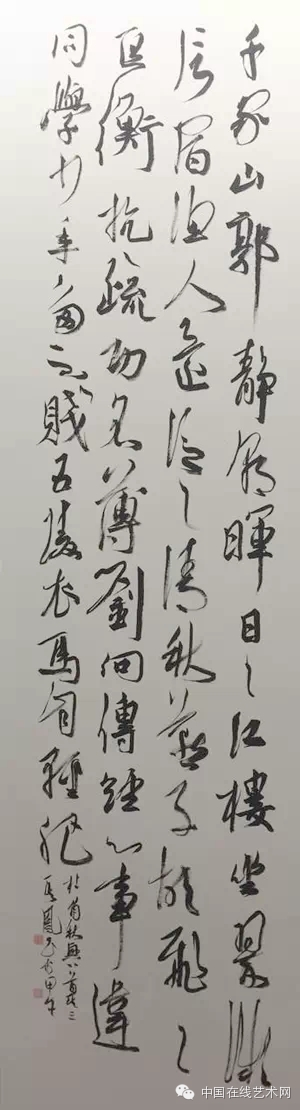 千家山郭靜朝暉日〻江樓坐翠微
信宿漁人還泛〻清秋燕子故飛〻
匡衡抗疏功名薄劉向傳經心事違
同學少年多不賤五陵衣馬自輕肥
杜甫秋興八首其三
甲午
中国在线艺术网